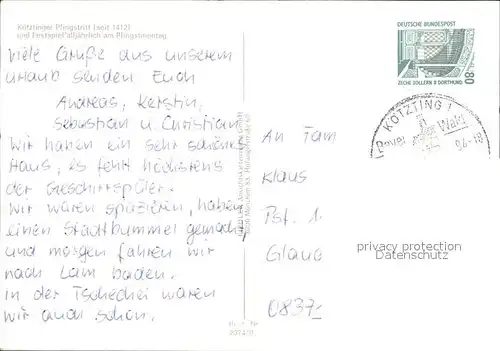 Kötztinger Pfingstritt (seit 1412)
und Festspiel alljährlich am Pfingstmontag
Viele Grüße aus unserem
Urlaub senden Euch
Andreas, Kerstin,
Sebastian u. Christian
Wir haben ein sehr schönes
Haus, es fehlt höchstens
der Geschirrspüler.
Wir waren spazieren, haben
einen Stadtbummel gemacht
und morgen fahren wir
nach Lam baden.
In der Tschechei waren
wir auch schon.
DEUTSCHE BUNDESPOST
80
ZECHE ZOLLERN II DORTMUND
KÖTZTING 1
Bayer. Wald
96-18
An Fam
Klaus
Pst. 1
0837
privacy protection
Datenschutz